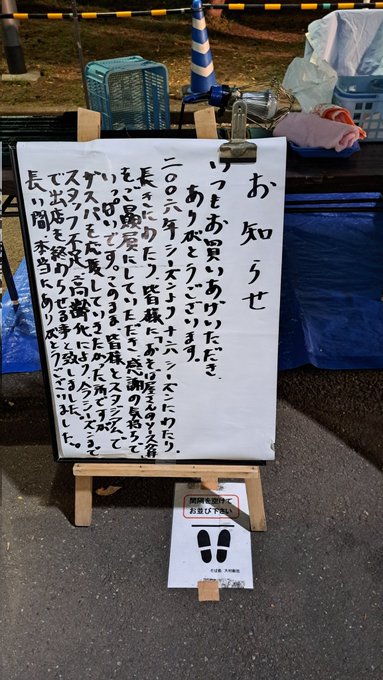 お知らせ
いつもお買いあげいただき、
ありがとうございます。
二〇〇六年シーズンより十六シーズンにわたり、
長きにわたり、皆様に「おそば屋さんのソース丼
を、ご贔屓にしていただき、感謝の気持ちで
いっぱいです。このまま、皆様とスタジアムで
ガスパを応援していきたかった所ですが、
スタッフ不足、高齢化により、今シーズンまで
で出店を終わらせる事と致しました。
長い間、本当にありがとうございました。
間隔を空けて
お並び下さい
そば処 大村製坊